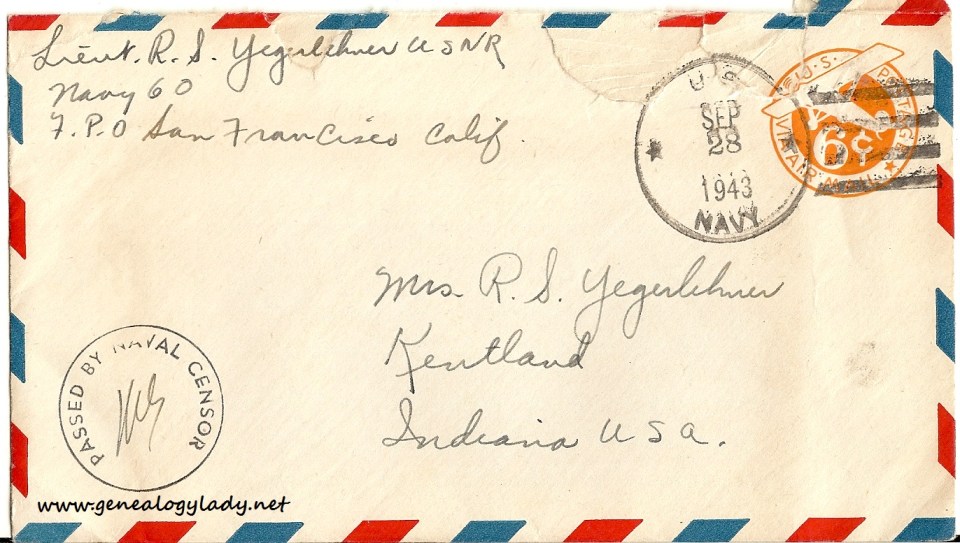 Lieut. R. S. Yegerlehner USNR
Navy 60
F.P.O San Francisco Calif.
U S
SEP
28
1943
NAVY
U.S. POSTAGE
6¢
VIA AIR MAIL
Mrs. R. S. Yegerlehner
Kentland
Indiana USA.
PASSED BY NAVAL CENSOR
www.genealogylady.net